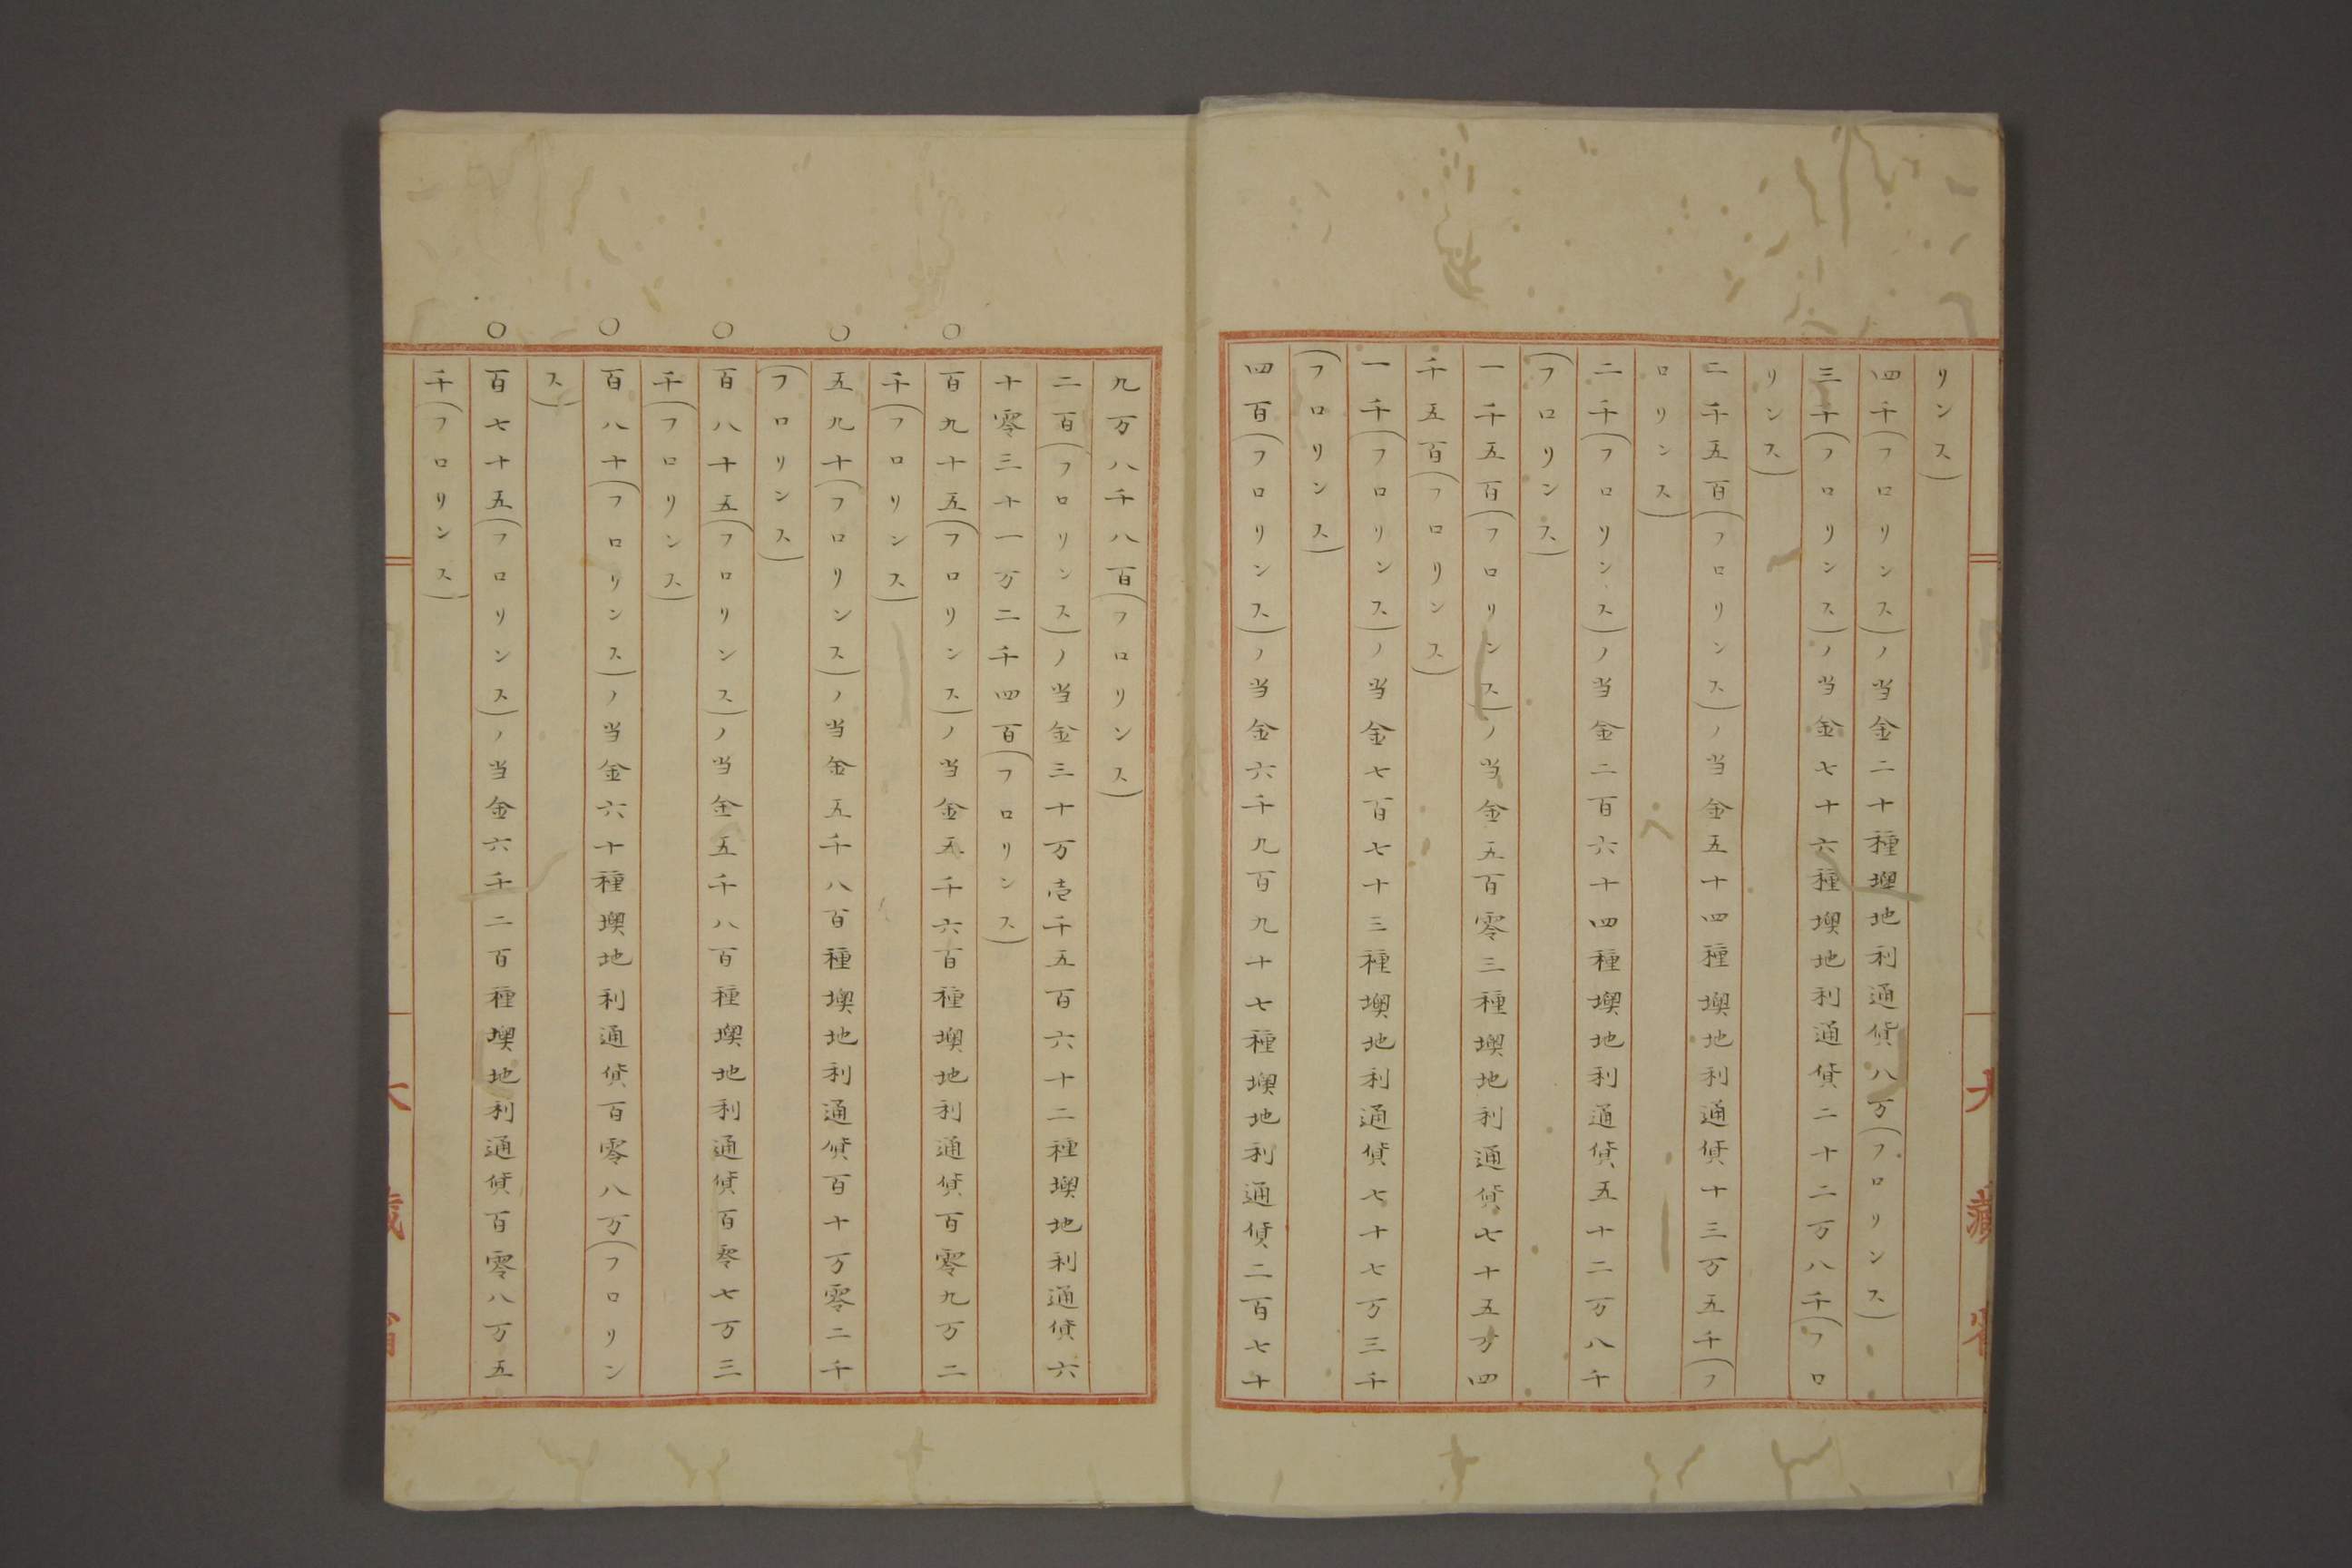 リンス)
四千(フロリンス)ノ当金二十種墺地利通貨八万(フロリンス)
三千(フロリンス)ノ当金七十六種墺地利通貨二十二万八千(フロ
リンス)
二千五百(フロリンス)ノ当金五十四種墺地利通貨十三万五千(フ
ロリンス)
二千(フロリンス)ノ当金二百六十四種墺地利通貨五十二万八千
(フロリンス)
一千五百(フロリンス)ノ当金五百零三種墺地利通貨七十五万四
千五百(フロリンス)
一千(フロリンス)ノ当金七百七十三種墺地利通貨七十七万三千
(フロリンス)
四百(フロリンス)ノ当金六千九百九十七種墺地利通貨二百七十
九万八千八百(フロリンス)
二百(フロリンス)ノ当金三十万壱千五百六十二種墺地利通貨六
十零三十一万二千四百(フロリンス)
○百九十五(フロリンス)ノ当金五千六百種墺地利通貨百零九万二
千(フロリンス)
○五九十(フロリンス)ノ当金五千八百種墺地利通貨百十万零二千
(フロリンス)
○百八十五(フロリンス)ノ当金五千八百種墺地利通貨百零七万三
千(フロリンス)
○百八十(フロリンス)ノ当金六十種墺地利通貨百零八万(フロリン
ス)
○百七十五(フロリンス)ノ当金六千二百種墺地利通貨百零八万五
千(フロリンス)